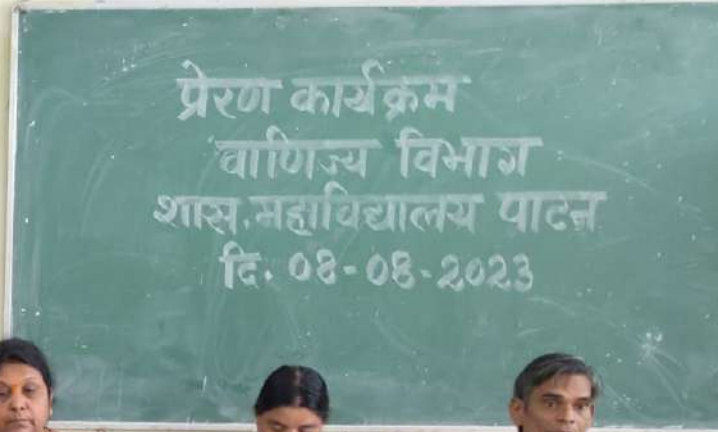 प्रेरण कार्यक्रम
वाणिज्य विभाग
शास. महाविद्यालय पाटन
दि. 08-08-2023